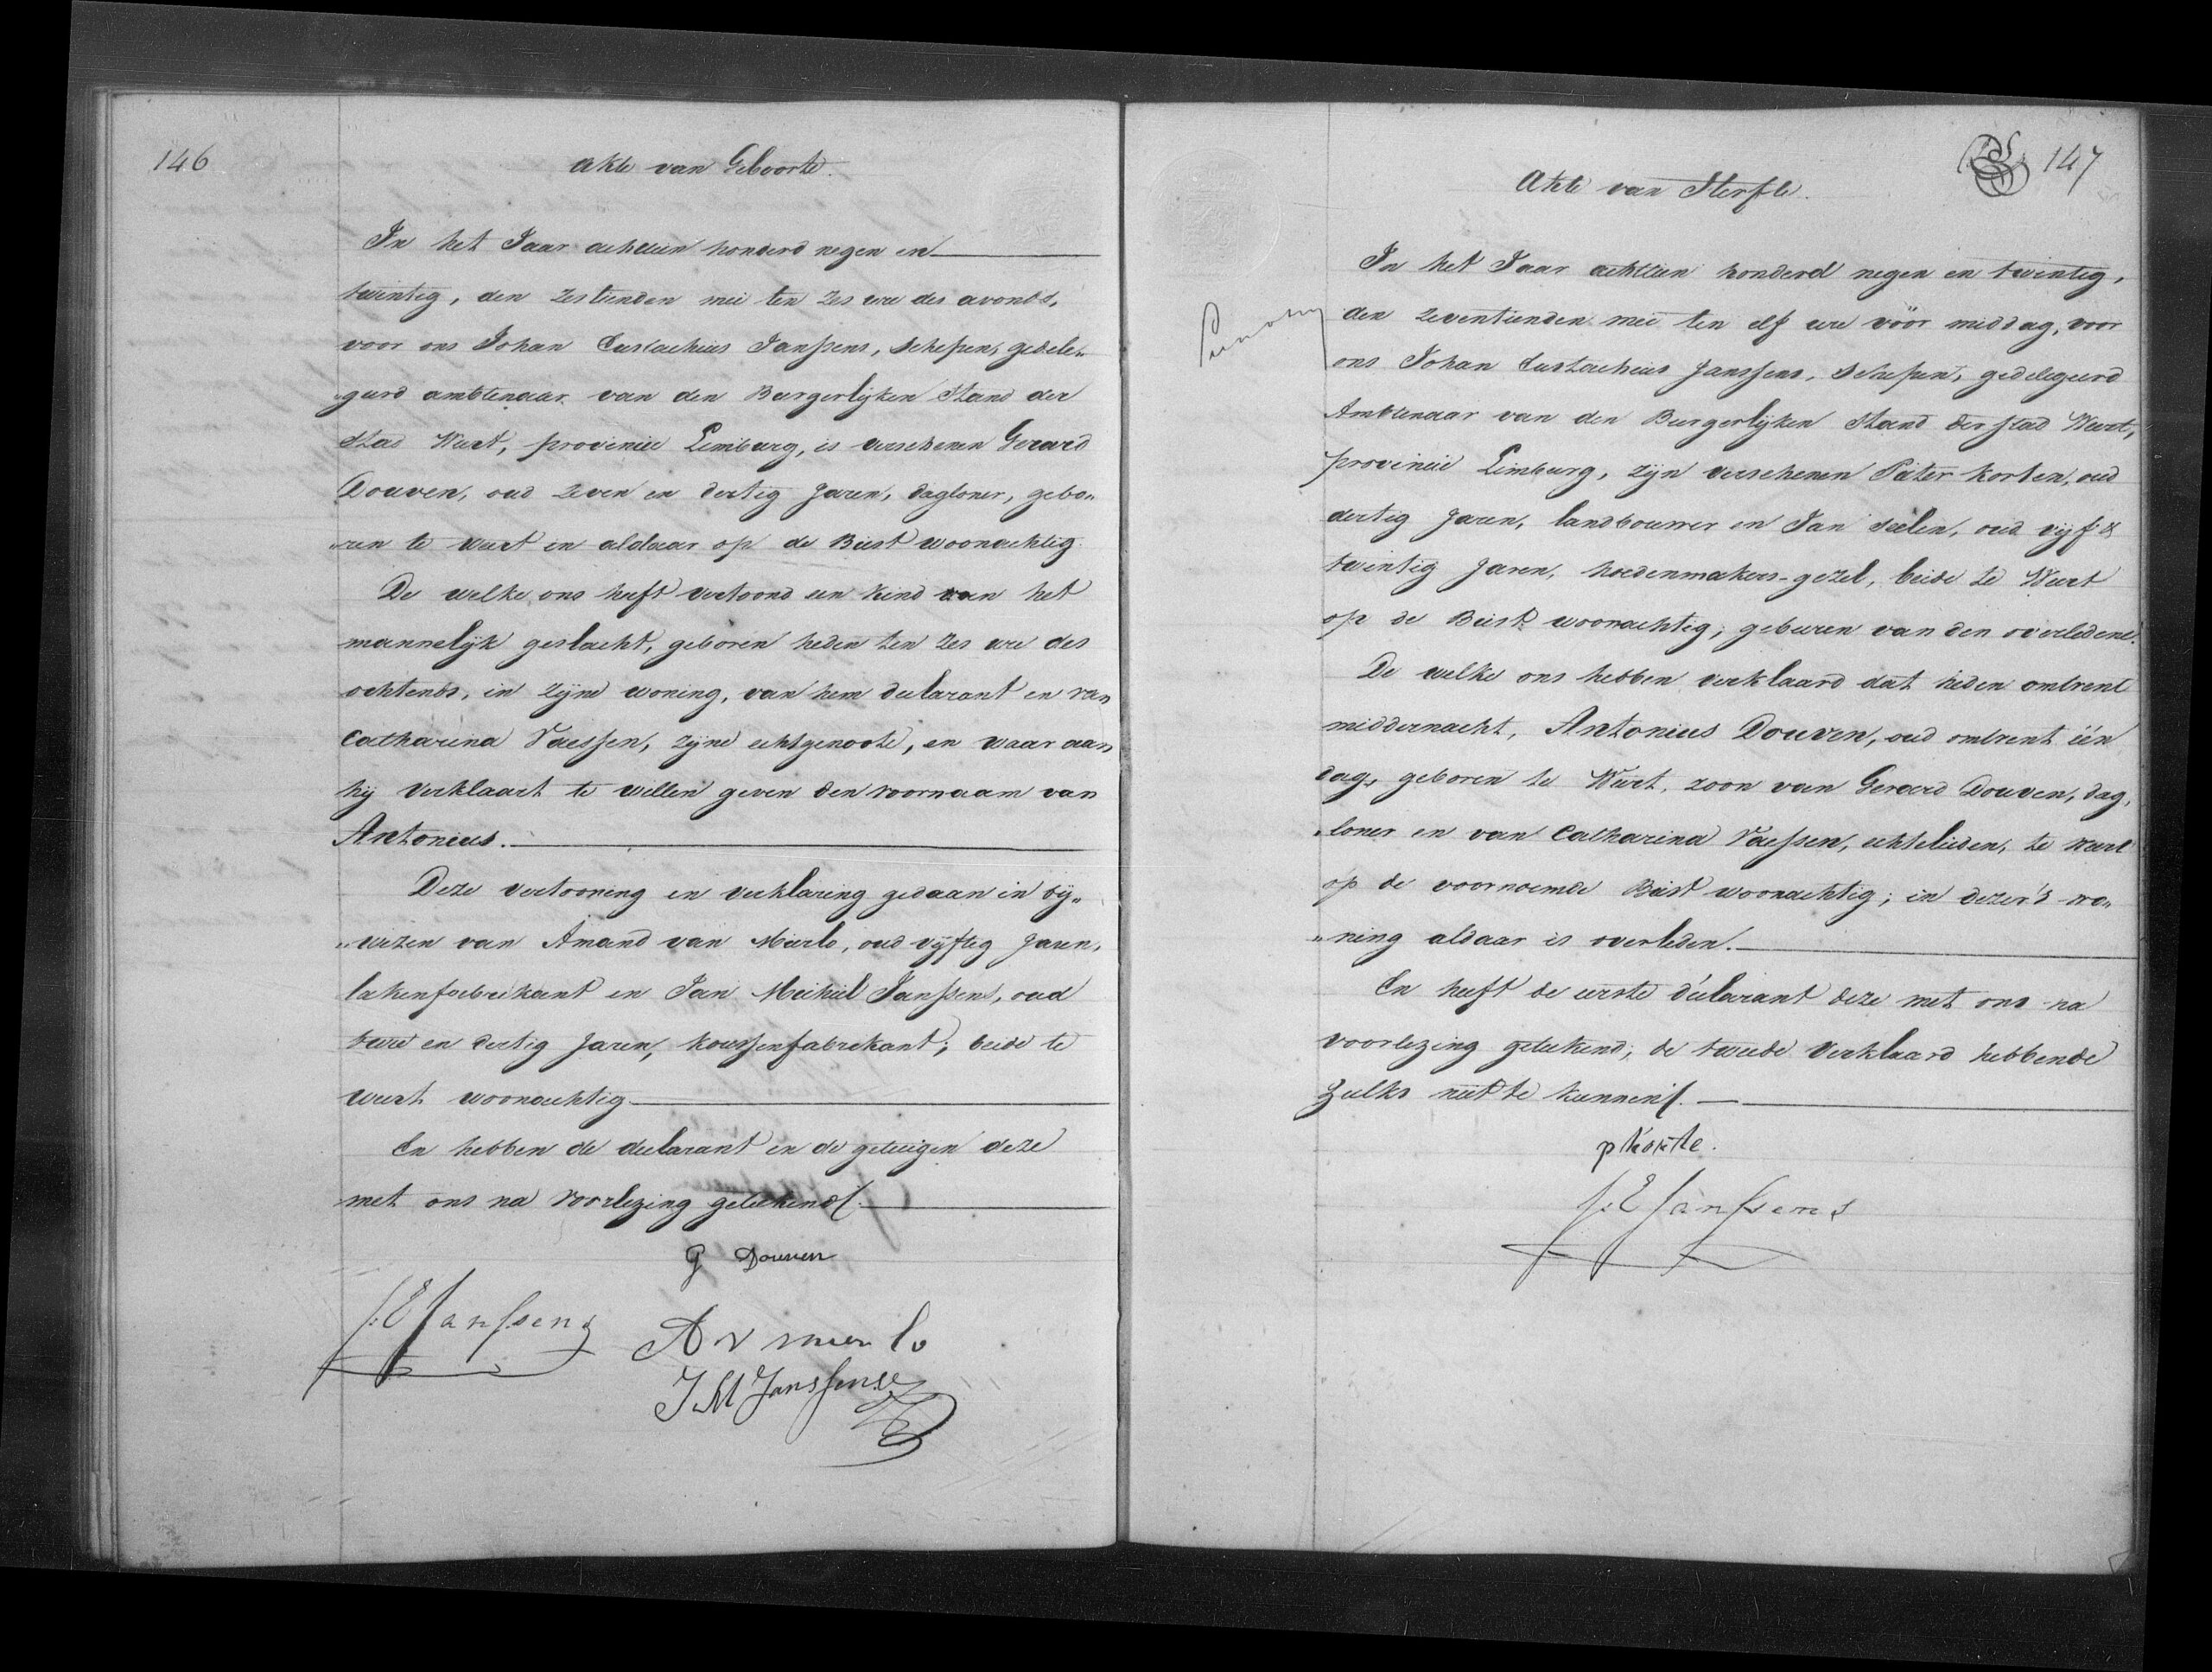 146
Akte van Geboorte.
In het Jaar achttien honderd negen en
twintig, den zestienden mei ten zes ure des avonds,
voor ons Johan Eustachius Janssens, Schepen, gedele„
„geerd ambtenaar van den Burgerlijken Stand der
Stad Weert, provincie Limburg, is verschenen Gerard
Douven, oud zeven en dertig Jaren, dagloner, gebo„
„ren te Weert en aldaar op de Biest woonachtig.
De welke ons heeft vertoond een kind van het
mannelijk geslacht, geboren heden ten zes ure des
ochtends, in zijne woning, van hem declarant en van
Catharina Vaessen, zijne echtgenoote, en waar aan
hij verklaart te willen geven den voornaam van
Antonius.
Deze vertooning en verklaring gedaan in bij„
„wezen van Amand van Mierlo, oud vijftig Jaren,
lakenfabrikant en Jan Michiel Janssens, oud
twee en dertig Jaren, koussenfabrikant; beide te
Weert woonachtig
En hebben de declarant en de getuigen deze
met ons na voorlezing geteekend/.
G Douven
J.E Janssens
A v mierlo
J M Janssens
147
Akte van Sterfte.
In het Jaar achttien honderd negen en twintig,
den zeventienden mei ten elf ure vóór middag, voor
ons Johan Eustachius Janssens, Schepen, gedelegeerd
Ambtenaar van den Burgerlijken Stand der stad Weert,
provincie Limburg, zijn verschenen Pieter Korten, oud
dertig Jaren, landbouwer en Jan Seelen, oud vijf &
twintig Jaren, hoedenmakers-gezel, beide te Weert
op de Biest woonachtig; geburen van den overledene.
De welke ons hebben verklaard dat heden omtrent
middernacht, Antonius Douven, oud omtrent één
dag, geboren te Weert, zoon van Gerard Douven, dag„
„loner en van Catharina Vaessen, echtelieden, te Weert
op de voornoemde Biest woonachtig; in dezer's wo„
„ning aldaar is overleden.
En heeft de eerste declarant deze met ons na
voorlezing geteekend; de tweede verklaard hebbende
zulks niet te kunnen/.
J.E Janssens